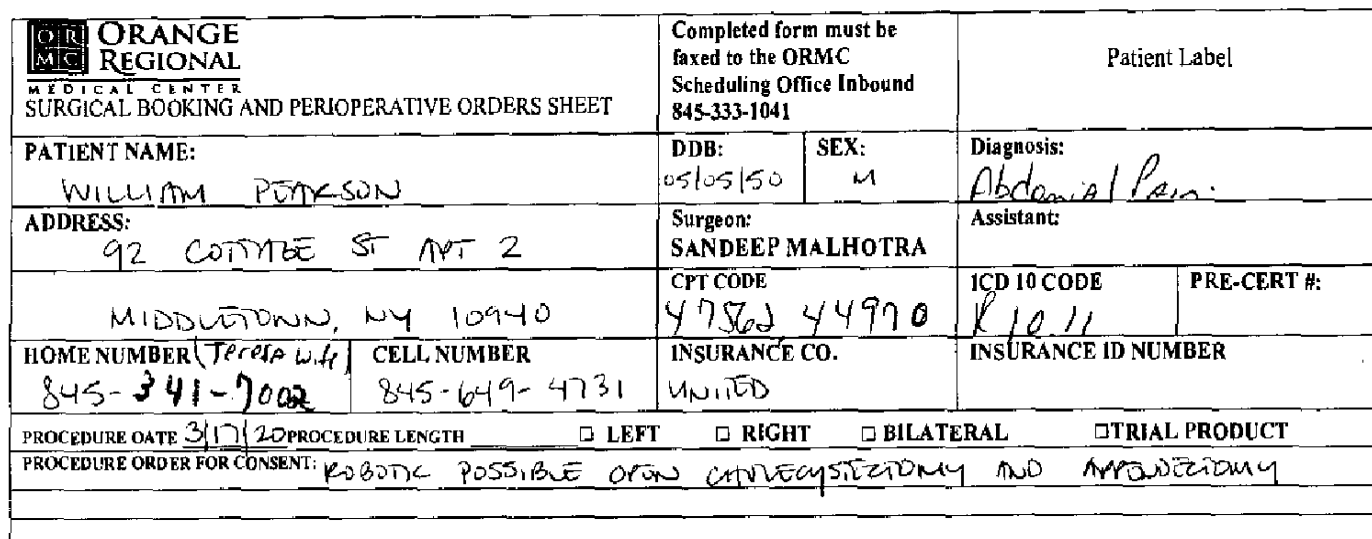 ORMC ORANGE REGIONAL
MEDICAL CENTER
SURGICAL BOOKING AND PERIOPERATIVE ORDERS SHEET
Completed form must be
faxed to the ORMC
Scheduling Office Inbound
845-333-1041
Patient Label
PATIENT NAME:
WILLIAM PEARSON
DDB:
05/05/50
SEX:
M
Diagnosis:
Abdominal Pain.
ADDRESS:
92 COTTAGE ST APT 2
Surgeon:
SANDEEP MALHOTRA
Assistant:
MIDDLETOWN, NY 10940
CPT CODE
47562 44970
ICD 10 CODE
R10.11
PRE-CERT #:
HOME NUMBER (Teresa wife)
845-341-7002
CELL NUMBER
845-649-4731
INSURANCE CO.
UNITED
INSURANCE ID NUMBER
PROCEDURE DATE 3/17/20 PROCEDURE LENGTH ☐ LEFT ☐ RIGHT ☐ BILATERAL ☐ TRIAL PRODUCT
PROCEDURE ORDER FOR CONSENT: ROBOTIC POSSIBLE OPEN CHOLECYSTECTOMY AND APPENDECTOMY